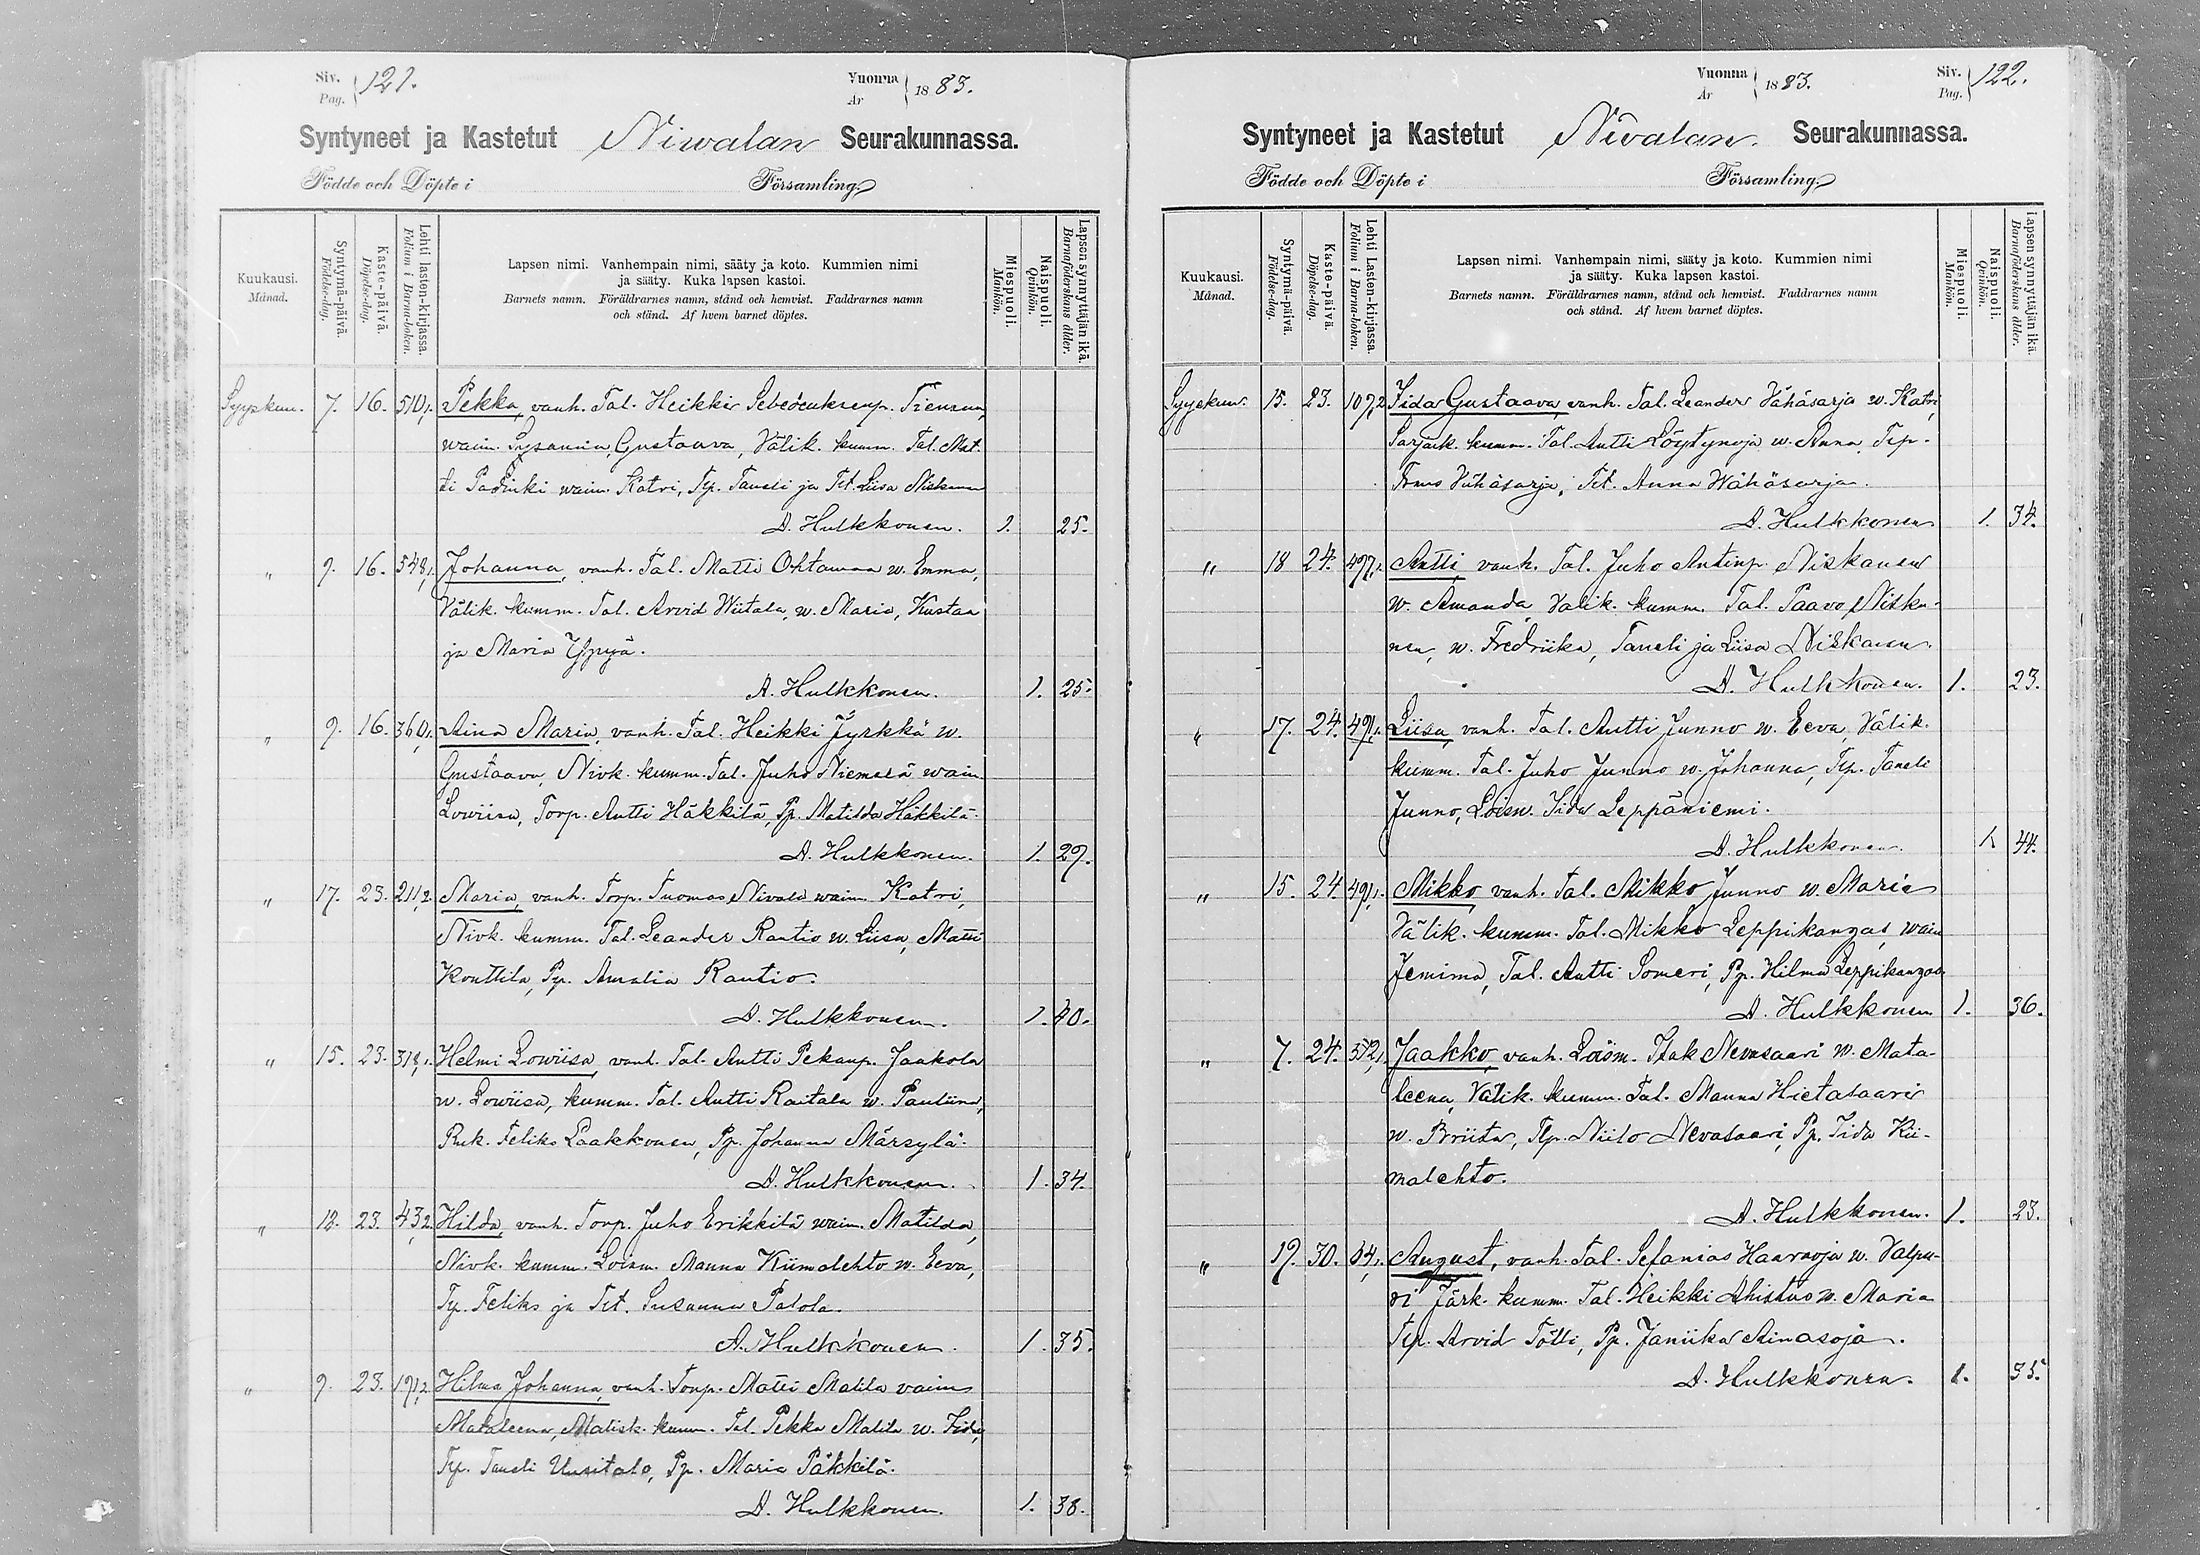 Siv. Pag. 121. Vuonna År 1883.
Syntyneet ja Kastetut Niwalan Seurakunnassa.
Födde och Döpte i Församling.
Kuukausi. Månad.
Syntymä-päivä. Födelse-dag.
Kaste-päivä. Döpelse-dag.
Lehti lasten-kirjassa. Folium i Barna-boken.
Lapsen nimi. Vanhempain nimi, sääty ja koto. Kummien nimi
ja sääty. Kuka lapsen kastoi.
Barnets namn. Föräldrarnes namn, stånd och hemvist. Faddrarnes namn
och stånd. Af hvem barnet döptes.
Miespuoli. Mankön.
Naispuoli. Qvinkön.
Lapsen synnyttäjän ikä. Barnaföderskans ålder.
Syyskuu. 7. 16. 510,1. Pekka, vanh. Tal. Heikki Tiensuu,
waim. Susanna Gustaava, Välik. kumm. Tal. Mat-
ti Padinki waim. Katri, Tp. Taneli ja Tit. Liisa Niskanen
A. Hulkkonen. 1. 25.
" 9. 16. 548,1. Johanna, vanh. Tal. Matti Ohtamaa w. Emma,
Välik. kumm. Tal. Arvid Wiitala, w. Maria, Kustaa
ja Maria Yppyä.
A. Hulkkonen. 1. 25.
" 9. 16. 360,1. Aina Maria, vanh. Tal. Heikki Jyrkkä w.
Gustaava, Nivk. kumm. Tal. Juho Niemelä waim.
Lowiisa, Torp. Antti Häkkilä, Pp. Matilda Häkkilä.
A. Hulkkonen. 1. 29.
" 17. 23. 211,2. Maria, vanh. Torp. Tuomas Nivala waim. Katri,
Nivk. kumm. Tal. Leander Rautio w. Liisa, Matti
Konttila, Pp. Amalia Rautio.
A. Hulkkonen. 1. 40.
" 15. 23. 318,1. Helmi Lowiisa, vanh. Tal. Antti Pekanp. Jaakola
w. Lowiisa, kumm. Tal. Antti Raitala w. Pauliina,
Ruk. Feliks Laakkonen, Pp. Johanna Märsylä.
A. Hulkkonen. 1. 34.
" 12. 23. 43,2. Hilda, vanh. Torp. Juho Erikkilä waim. Matilda,
Nivk. kumm. Loism. Manna Kiimalehto w. Eeva,
Tp. Feliks ja Tit. Susanna Palola.
A. Hulkkonen. 1. 35.
" 9. 23. 191,2. Hilma Johanna, vanh. Torp. Matti Malila vaim.
Mataleena, Malisk. kumm. Tal. Pekka Malila w. Iida,
Tp. Taneli Uusitalo, Pp. Maria Päkkilä.
A. Hulkkonen. 1. 38.
Vuonna År 1883. Siv. Pag. 122.
Syntyneet ja Kastetut Nivalan. Seurakunnassa.
Födde och Döpte i Församling.
Kuukausi. Månad.
Syntymä-päivä. Födelse-dag.
Kaste-päivä. Döpelse-dag.
Lehti Lasten-kirjassa. Folium i Barna-boken.
Lapsen nimi. Vanhempain nimi, sääty ja koto. Kummien nimi
ja sääty. Kuka lapsen kastoi.
Barnets namn. Föräldrarnes namn, stånd och hemvist. Faddrarnes namn
och stånd. Af hvem barnet döptes.
Miespuoli. Mankön.
Naispuoli. Qvinkön.
Lapsen synnyttäjän ikä. Barnaföderskans ålder.
Syyskuu. 15. 23. 107,2 Iida Gustaava, vanh. Tal. Leander Vähäsarja w. Katri,
Sarjank. kumm. Tal. Antti Löytynoja w. Anna, Tp.
Vähäsarja, Tit. Anna Wähäsarja.
A. Hulkkonen 1. 34.
" 18 24. 497,2. Antti, vanh. Tal. Juho Antinp. Niskanen
w. Amanda, Välik. kumm. Tal. Paavo Niska-
nen, w. Fredriika, Taneli ja Liisa Niskanen.
A. Hulkkonen. 1. 23.
" 17. 24. 491,1. Liisa, vanh. Tal. Antti Junno w. Eeva, Välik.
kumm. Tal. Juho Junno w. Johanna, Tp. Taneli
Junno, Loisn. Iida Leppäniemi.
A. Hulkkonen. 1. 44.
" 15. 24. 491,1. Mikko, vanh. Tal. Mikko Junno w. Maria
Välik. kumm. Tal. Mikko Leppikangas, waim.
Jemima, Tal. Antti Someri, Pp. Hilma Leppikangas.
A. Hulkkonen 1. 36.
" 7. 24. 352,1. Jaakko, vanh. Loism. Isak Nevasaari w. Mata-
leena, Välik. kumm. Tal. Manna Hietasaari
w. Briita, Tp. Niilo Nevasaari, Pp. Iida Kii-
malehto.
A. Hulkkonen. 1. 23.
" 19. 30. 64,1. August, vanh. Tal. Sefanias Haaraoja w. Valpu-
ri, Järk. kumm. Tal. Heikki Ahistus w. Maria
Tp. Arvid Tölli, Pp. Janiika Ainasoja.
A. Hulkkonen. 1. 35.